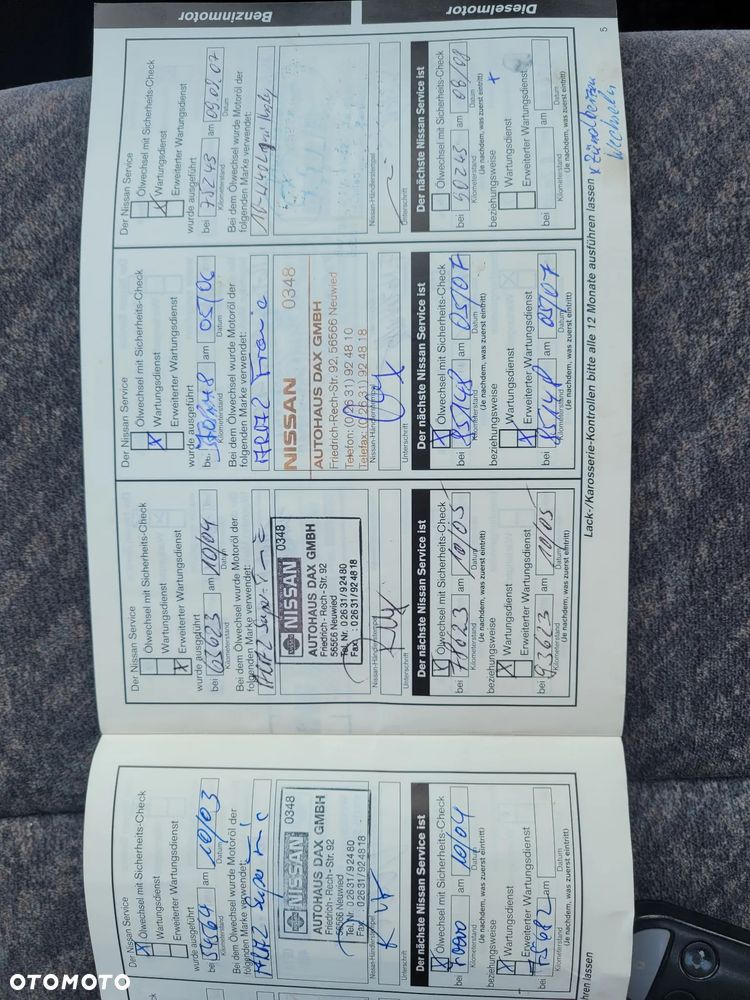 Benzinmotor
Dieselmotor
Der Nissan Service
Ölwechsel mit Sicherheits-Check
Wartungsdienst
Erweiterter Wartungsdienst
wurde ausgeführt
am 10/03
Kilometerstand
Datum
Bei dem Ölwechsel wurde Motoröl der
folgenden Marke verwendet:
NISSAN 0348
AUTOHAUS DAX GMBH
Friedrich - Rech - Str. 92
56566 Neuwied
Tel. Nr. 02631/92480
Fax : 02631/924818
Nissan-Händlerstempel
Unterschrift
Der nächste Nissan Service ist
X Ölwechsel mit Sicherheits-Check
bei am 10/04
Kilometerstand
Datum
(Je nachdem, was zuerst eintritt)
beziehungsweise
X Wartungsdienst
Erweiterter Wartungsdienst
bei am
(Je nachdem, was zuerst eintritt)
hren lassen
Der Nissan Service
Ölwechsel mit Sicherheits-Check
Wartungsdienst
X Erweiterter Wartungsdienst
wurde ausgeführt
bei am 10/04
Kilometerstand
Datum
Bei dem Ölwechsel wurde Motoröl der
folgenden Marke verwendet:
NISSAN 0348
AUTOHAUS DAX GMBH
Friedrich - Rech - Str. 92
56566 Neuwied
Tel. Nr. 02631/92480
Fax : 02631/924818
Nissan-Händlerstempel
Unterschrift
Der nächste Nissan Service ist
X Ölwechsel mit Sicherheits-Check
bei am 10/05
Kilometerstand
Datum
(Je nachdem, was zuerst eintritt)
beziehungsweise
X Wartungsdienst
Erweiterter Wartungsdienst
bei 93623 am 10/05
Kilometerstand
Datum
(Je nachdem, was zuerst eintritt)
Der Nissan Service
Ölwechsel mit Sicherheits-Check
X Wartungsdienst
Erweiterter Wartungsdienst
wurde ausgeführt
am 05/06
Kilometerstand
Datum
Bei dem Ölwechsel wurde Motoröl der
folgenden Marke verwendet:
NISSAN 0348
AUTOHAUS DAX GMBH
Friedrich-Rech-Str. 92, 56566 Neuwied
Telefon: (0 26 31) 92 48 10
Telefax: (0 26 31) 92 48 18
Nissan-Händlerstempel
Unterschrift
Der nächste Nissan Service ist
X Ölwechsel mit Sicherheits-Check
bei 85148 am 05/07
Kilometerstand
Datum
(Je nachdem, was zuerst eintritt)
beziehungsweise
Wartungsdienst
X Erweiterter Wartungsdienst
bei 85148 am 05/07
Kilometerstand
Datum
(Je nachdem, was zuerst eintritt)
Der Nissan Service
Ölwechsel mit Sicherheits-Check
X Wartungsdienst
Erweiterter Wartungsdienst
wurde ausgeführt
bei 75243 am 09.08.07
Kilometerstand
Datum
Bei dem Ölwechsel wurde Motoröl der
folgenden Marke verwendet:
Nissan-Händlerstempel
Unterschrift
Der nächste Nissan Service ist
Ölwechsel mit Sicherheits-Check
bei 90243 am 08/08
Kilometerstand
Datum
(Je nachdem, was zuerst eintritt)
beziehungsweise
Wartungsdienst
Erweiterter Wartungsdienst
bei am
(Je nachdem, was zuerst eintritt)
Lack-/Karosserie-Kontrollen bitte alle 12 Monate ausführen lassen
x Zündkerzen
Wechseln
5
OTOMOTO